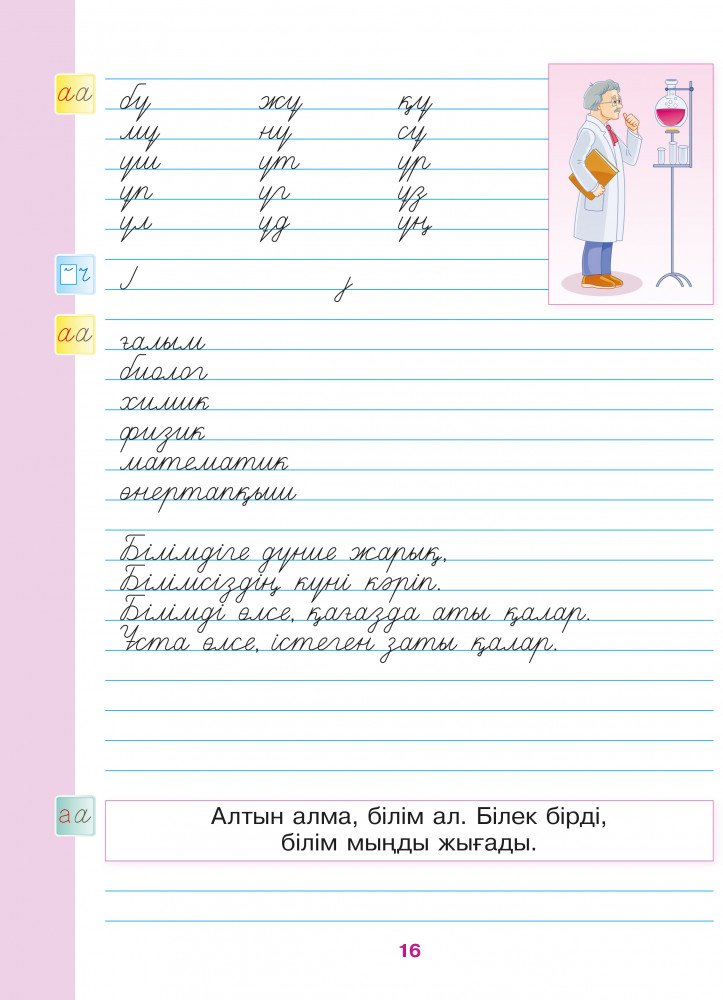 аа
бұ жұ құ
мұ нұ сұ
ұш ұт ұр
ұп ұг ұз
ұл ұд ұң
ғалым
биолог
химик
физик
математик
өнертапқыш
Білімдіге дүние жарық,
Білімсіздің күні кәріп.
Білімді өлсе, қағазда аты қалар.
Ұста өлсе, істеген заты қалар.
аа
аа
Алтын алма, білім ал. Білек бірді,
білім мыңды жығады.
16